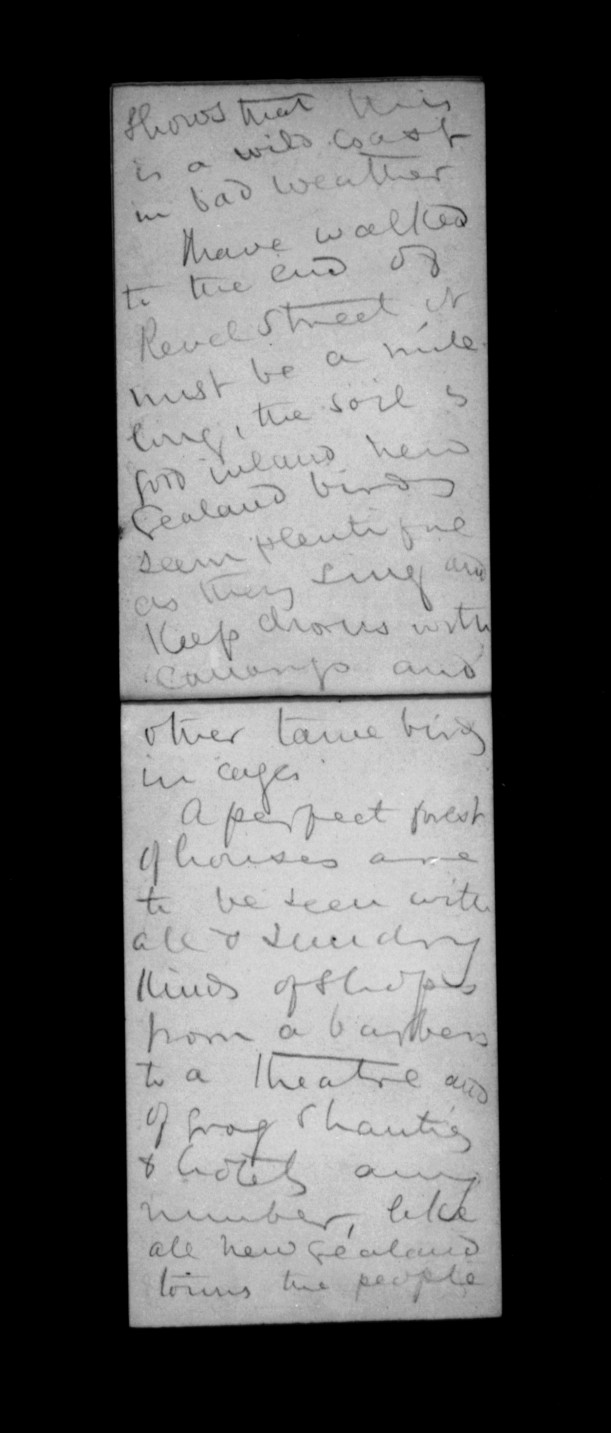 shows that this
is a wild coast
in bad weather
I have walked
to the end of
Revel Street it
must be a mile
long, the soil is
good inland new
Zealand birds
seem plentiful
as they sing and
Keep with
and
other tame birds
in cages
A perfect forest
of houses are
to be seen with
all & sundry
Kinds of shops
from a barbers
to a theatre and
of grog shanties
& hotels any
number, like
all new Zealand
towns the people